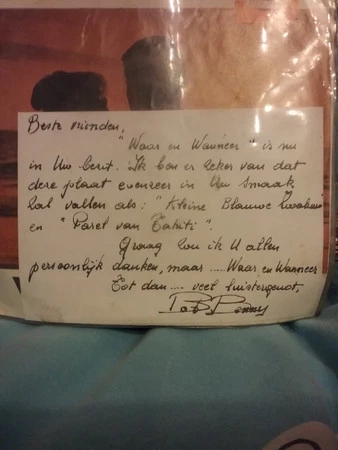 Beste vrienden,
"Waar en Wanneer" is nu
in Uw bezit. Ik ben er zeker van dat
deze plaat evenzeer in Uw smaak
zal vallen als: "Kleine Blauwe Zwaluw"
en "Parel van Tahiti".
Graag zou ik U allen
persoonlijk danken, maar .... Waar en Wanneer
Tot dan .... veel luistergenot,